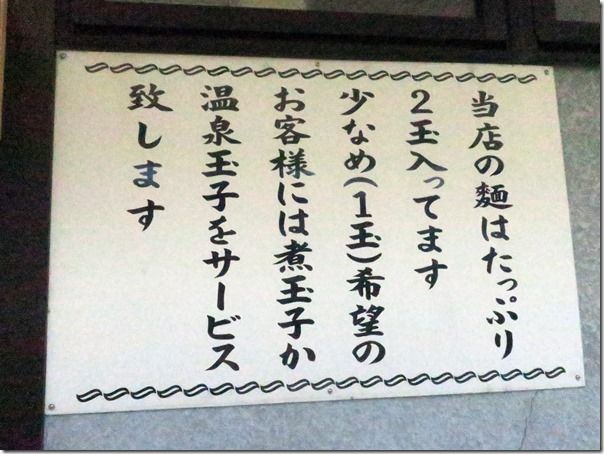 当店の麺はたっぷり
2玉入ってます
少なめ(1玉)希望の
お客様には煮玉子か
温泉玉子をサービス
致します